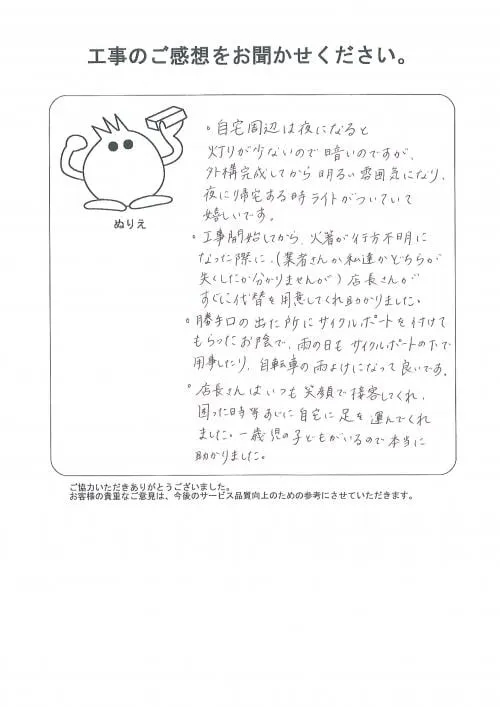 工事のご感想をお聞かせください。
ぬりえ
。自宅周辺は夜になると
灯りが少ないので暗いのですが、
外構完成してから明るい雰囲気になり、
夜に帰宅する時ライトがついていて
嬉しいです。
。工事開始してから、が行方不明に
なった際に、(業者さんか私達かどちらが
失くしたか分かりませんが)店長さんが
すぐに代替を用意してくれ助かりました。
。勝手口の出た所にサイクルポートを付けて
もらったお陰で、雨の日もサイクルポートの下で
用事したり、自転車の雨よけになって良いです。
。店長さんはいつも笑顔で接客してくれ、
困った時等すぐに自宅に足を運んでくれ
ました。一歳児の子どもがいるので本当に
助かりました。
ご協力いただきありがとうございました。
お客様の貴重なご意見は、今後のサービス品質向上のための参考にさせていただきます。